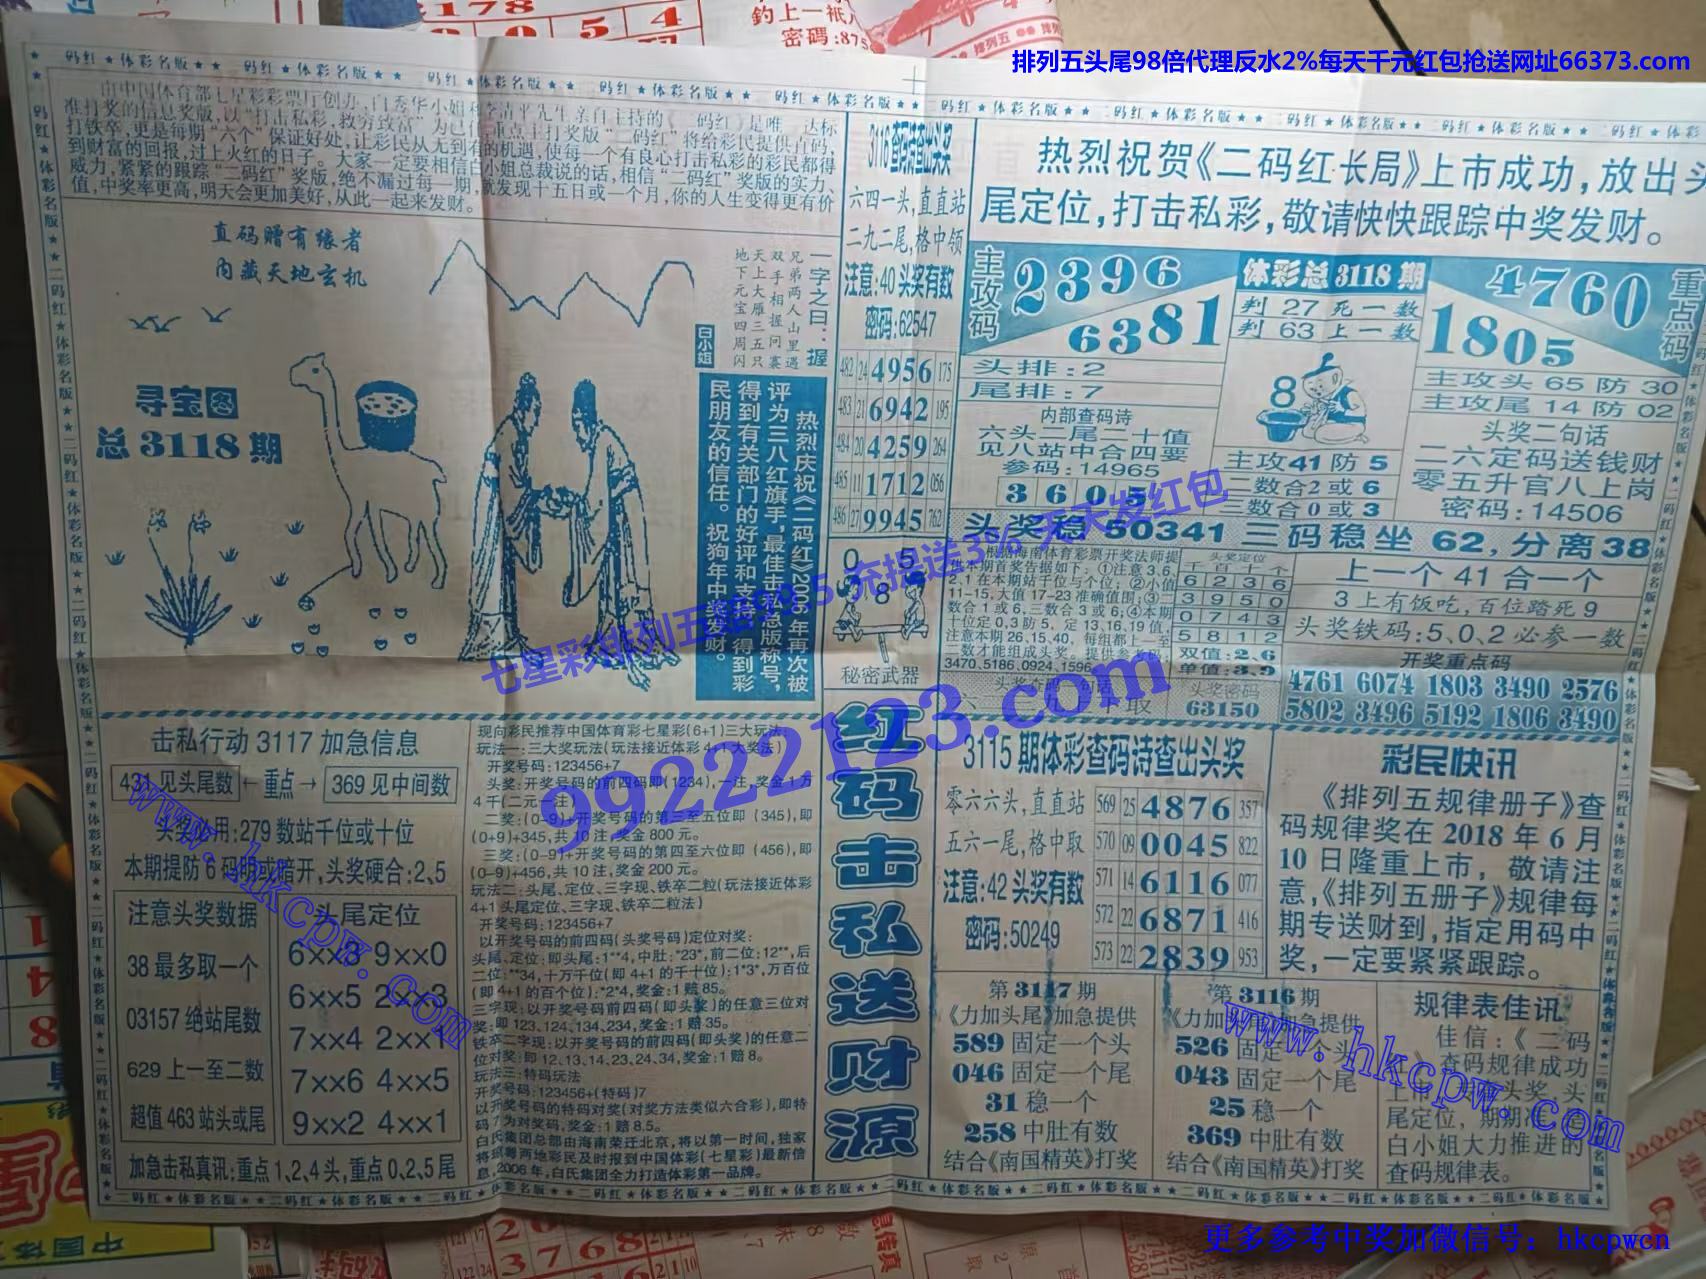 排列五头尾98倍代理反水2%每天千元红包抢送网址66373.com
由中国体育部七星彩彩票厅创办
打铁卒,更是每期“六个”保证好处,让彩民从无到有的机遇,使每一个有良心打击私彩的彩民都得
到财富的回报,过上火红的日子。大家一定要相信白小姐总裁说的话,相信“二码红”奖版的实力、
威力,紧紧的跟踪“二码红”奖版,绝不漏过每一期,就发现十五日或一个月,你的人生变得更有价
值,中奖率更高,明天会更加美好,从此一起来发财。
直码赠有缘者
内藏天地玄机
寻宝图
总3118期
一字之曰:握
兄弟两人山里遇
双手相握问寨
天上大雁三五只
地下元宝四周闪
曰小姐
热烈庆祝《二码红》2006年再次被
评为三八红旗手,最佳击私急版称号,
得到有关部门的好评和支持,得到彩
民朋友的信任。祝狗年中奖发财。
3116查码诗查出头奖
六四一头,直直站
二九二尾,格中领
注意:40头奖有数
密码:62547
482 24 4956 175
483 21 6942 195
484 20 4259 264
485 11 1712 056
486 27 9945 762
0 5
8
秘密武器
热烈祝贺《二码红长局》上市成功,放出头
尾定位,打击私彩,敬请快快跟踪中奖发财。
主攻码
2396
6381
体彩总3118期
判27死一数
判63上一数
4760
1805
重点码
头排:2
尾排:7
内部查码诗
六头二尾二十值
见八站中合四要
参码:14965
3605
8
主攻41防5
二数合2或6
三数合0或3
主攻头65防30
主攻尾14防02
头奖二句话
二六定码送钱财
零五升官八上岗
密码:14506
头奖稳50341三码稳坐62,分离38
根据海南体育彩票开奖法师提
供本期首奖告据如下:①注意3.6.
2.1在本期站千位与个位;②小值
11-15,大值17-23准确值围;③二
数合1或6,三数合3或6;④本期
十位定0.3防5.定13.16.19值
注意本期26.15.40,每组都上一至
二数才能组成头奖。提供参考码:
3470.5186.0924.1596
头奖定位
千百十个
6236
3950
0743
5812
双值:2.6
单值:3.9
头奖密码
63150
上一个41合一个
3上有饭吃,百位踏死9
头奖铁码:5、0、2必参一数
开奖重点码
4761 6074 1803 3490 2576
5802 3496 5192 1806 3490
击私行动3117加急信息
431见头尾数←重点→369见中间数
头奖必用:279数站千位或十位
本期提防6码明或暗开,头奖硬合:2、5
注意头奖数据
38最多取一个
03157绝站尾数
629上一至二数
超值463站头或尾
头尾定位
6××8 9××0
6××5 2××3
7××4 2××1
7××6 4××5
9××2 4××1
加急击私真讯:重点1、2、4头,重点0、2、5尾
现向彩民推荐中国体育彩七星彩(6+1)三大玩法。
玩法一:三大奖玩法(玩法接近体彩4+1大奖法)
开奖号码:123456+7
头奖:开奖号码的前四码即(1234),一注,奖金1万
4千(二元一注)
二奖:(0-9)+开奖号码的第三至五位即(345),即
(0+9)+345,共10注,奖金800元。
三奖:(0-9)+开奖号码的第四至六位即(456),即
(0-9)+456,共10注,奖金200元。
玩法二:头尾、定位、三字现、铁卒二粒(玩法接近体彩
4+1头尾定位、三字现、铁卒二粒法)
开奖号码:123456+7
以开奖号码的前四码(头奖号码)定位对奖:
头尾、定位:即头尾:1**4,中肚:*23*,前二位:12**,后
二位:**34,十万千位(即4+1的千十位):1*3*,万百位
(即4+1的百个位):*2*4,奖金:1赔85。
三字现:以开奖号码前四码(即头奖)的任意三位对
奖:即123、124、134、234,奖金:1赔35。
铁卒二字现:以开奖号码的前四码(即头奖)的任意二
位对奖:即12、13、14、23、24、34,奖金:1赔8。
玩法三:特码玩法
开奖号码:123456+(特码)7
以开奖号码的特码对奖(对奖方法类似六合彩),即特
码7为对奖码,奖金:1赔8.5。
白氏集团总部由海南荣迁北京,将以第一时间,独家
将琼粤两地彩民及时报到中国体彩(七星彩)最新信
息,2006年,白氏集团全力打造体彩第一品牌。
红码击私送财源
3115期体彩查码诗查出头奖
零六六头,直直站
五六一尾,格中取
注意:42头奖有数
密码:50249
569 25 4876 357
570 09 0045 822
571 14 6116 077
572 22 6871 416
573 22 2839 953
彩民快讯
《排列五规律册子》查
码规律奖在2018年6月
10日隆重上市,敬请注
意,《排列五册子》规律每
期专送财到,指定用码中
奖,一定要紧紧跟踪。
第3117期
《力加头尾》加急提供
589固定一个头
046固定一个尾
31稳一个
258中肚有数
结合《南国精英》打奖
第3116期
《力加头尾》加急提供
526固定一个头
043固定一个尾
25稳一个
369中肚有数
结合《南国精英》打奖
规律表佳讯
佳信:《二码
》查码规律成功
头奖,头
尾定位,期期准,是
白小姐大力推进的
查码规律表。
七星彩排列五赔99.5 充提送3% 天天发红包
99222123.com
www.hkcpw.com
www.hkcpw.com
更多参考中奖加微信号: hkcpwcn